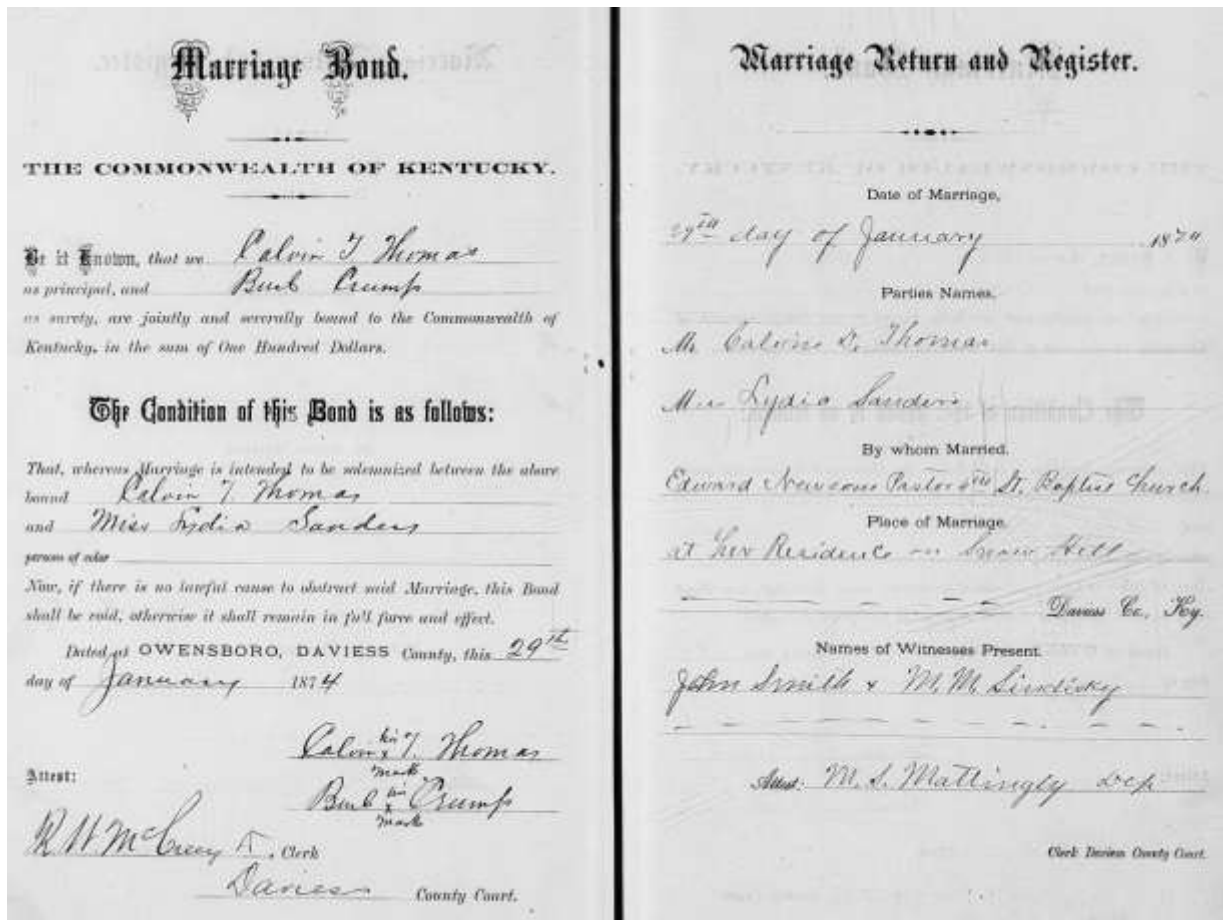 Marriage Bond.
THE COMMONWEALTH OF KENTUCKY.
Be it Known, that we Calvin T Thomas
as principal, and Burb Crump
as surety, are jointly and severally bound to the Commonwealth of
Kentucky, in the sum of One Hundred Dollars.
The Condition of this Bond is as follows:
That, whereas Marriage is intended to be solemnized between the above
bound Calvin T Thomas
and Miss Lydia Sanders
persons of color
Now, if there is no lawful cause to obstruct said Marriage, this Bond
shall be void, otherwise it shall remain in full force and effect.
Dated at OWENSBORO, DAVIESS County, this 29th
day of January 1874
Calvin his x mark T. Thomas
Attest:
Burb his x mark Crump
R H McCreery, Clerk
Daviess County Court.
Marriage Return and Register.
Date of Marriage,
29th day of January 1874
Parties Names.
Mr Calvin T. Thomas
Miss Lydia Sanders
By whom Married.
Edward Newsom Pastor St. Baptist Church
Place of Marriage.
at her Residence on Snow Hill
Daviess Co, Ky.
Names of Witnesses Present.
John Smith & M. M.
Attest: M. S. Mattingly
Clerk Daviess County Court.